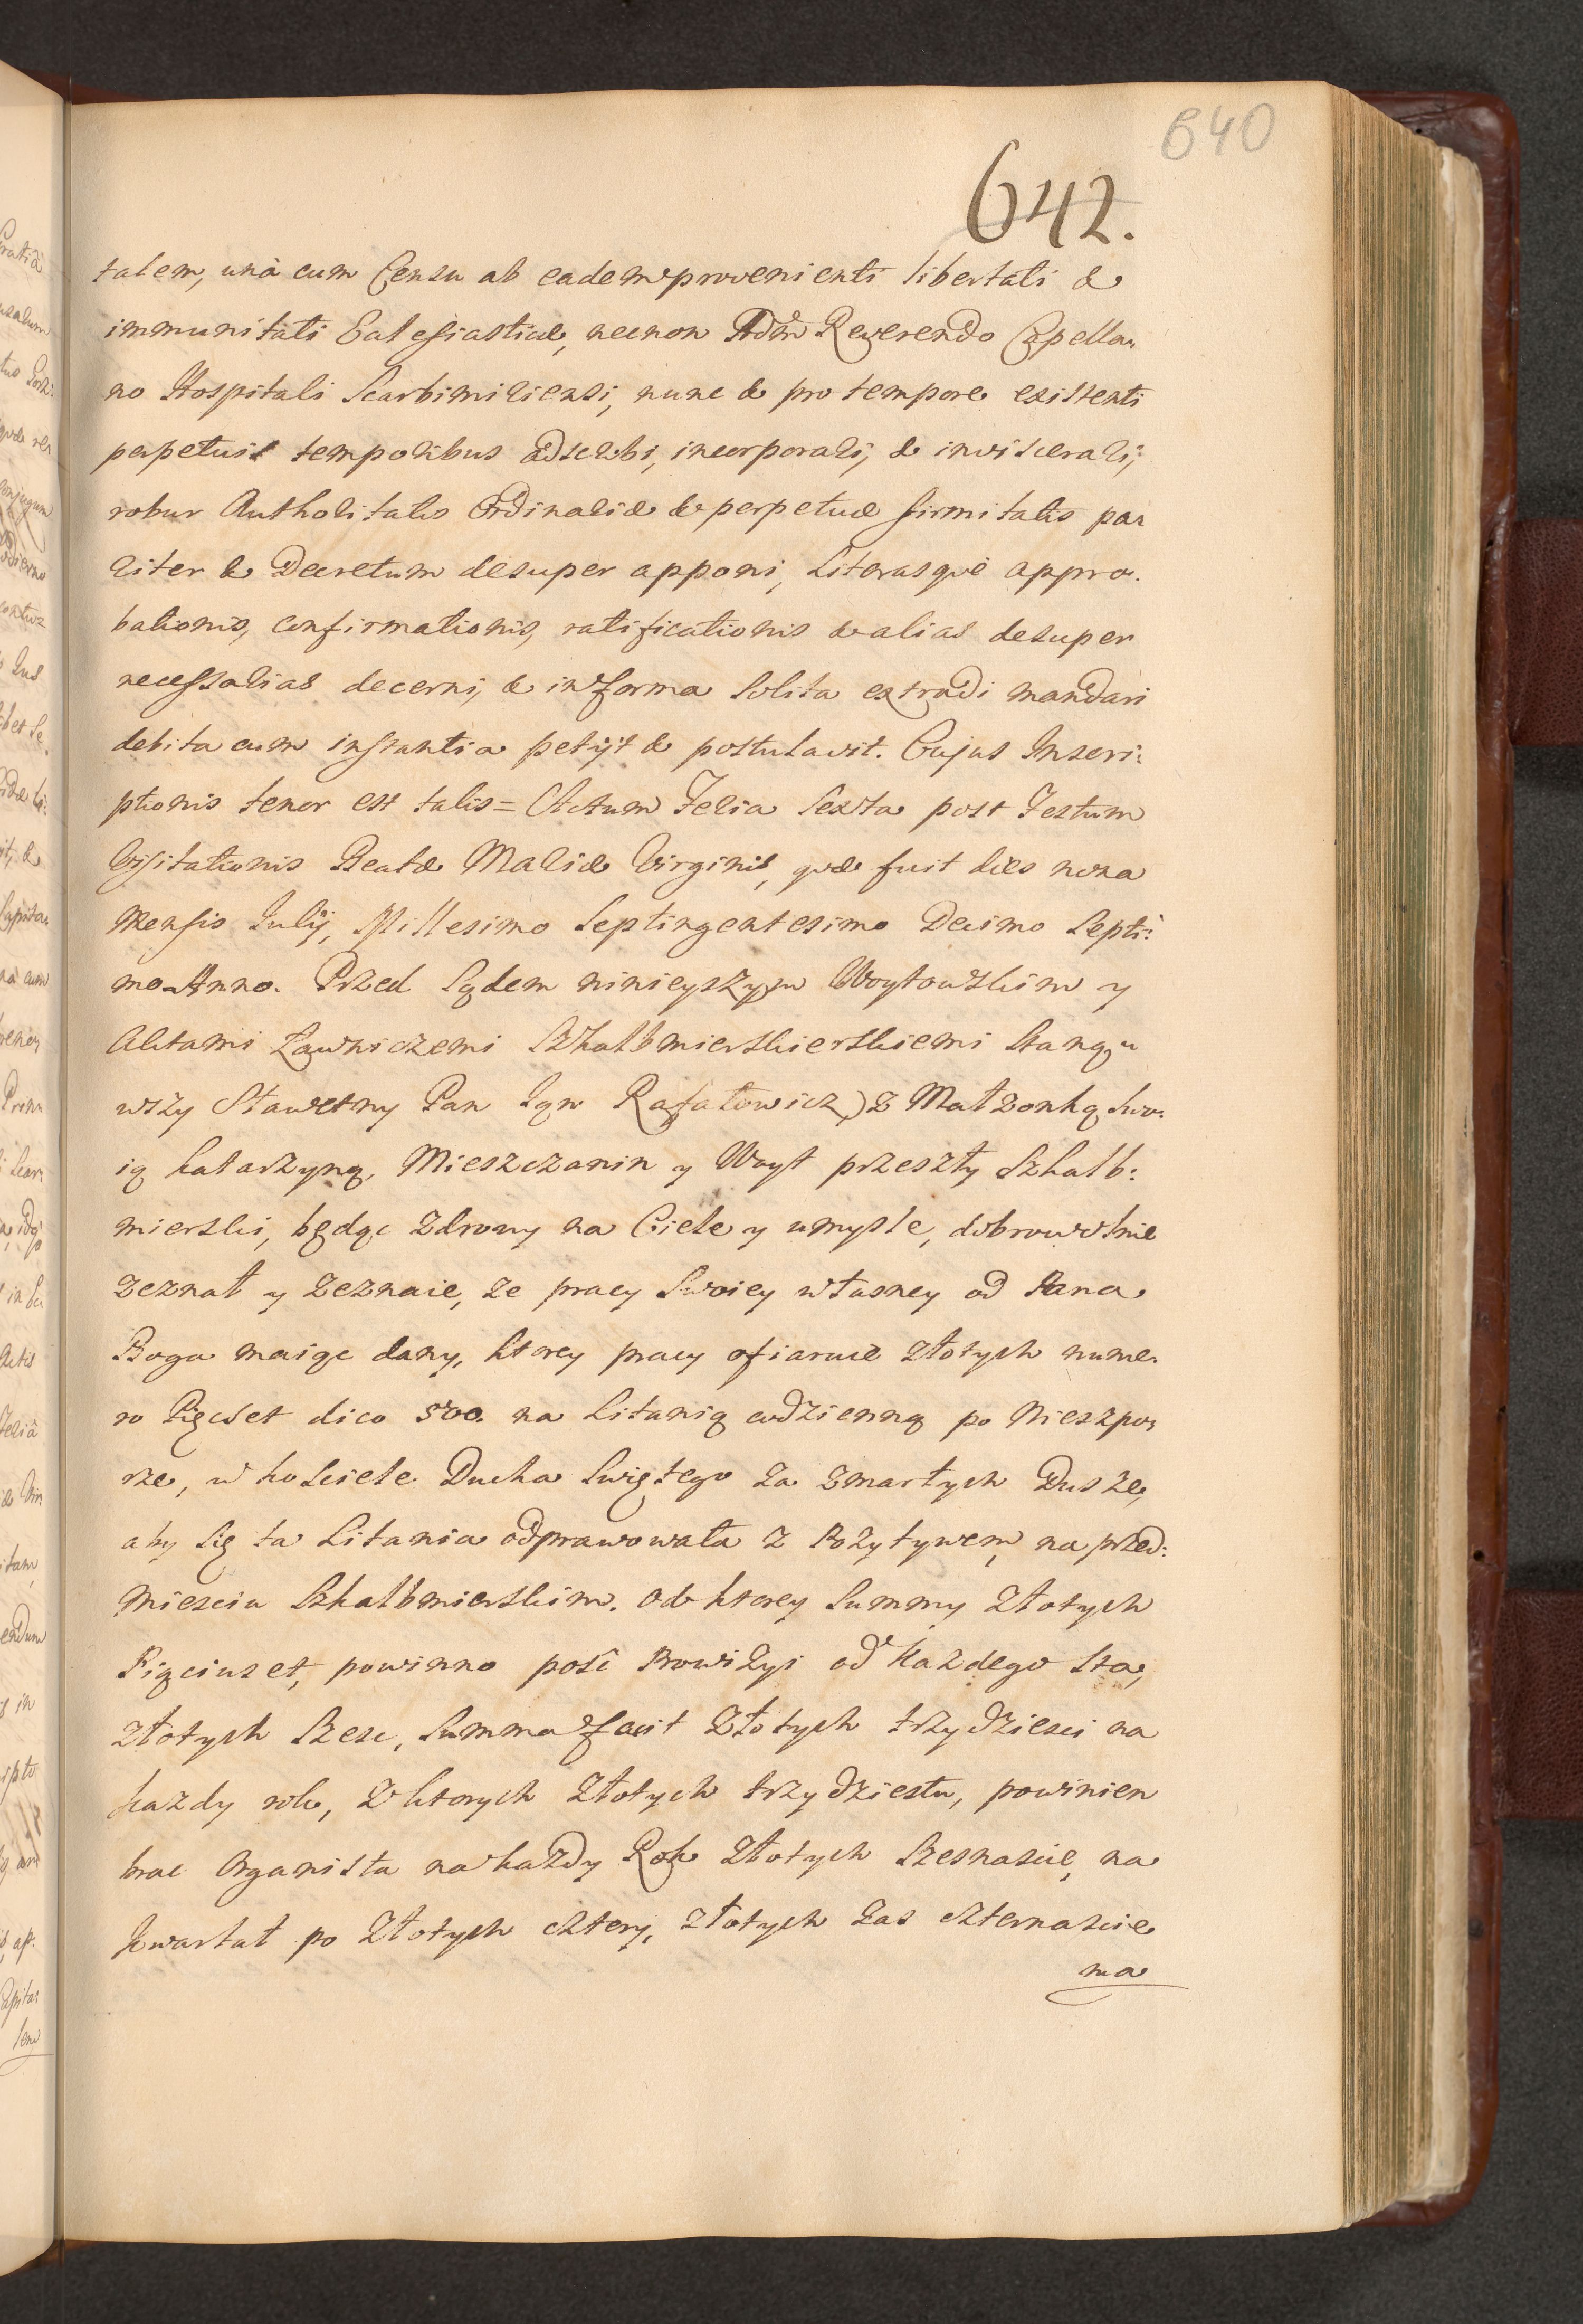 640
642.
talem, unà cum Censu ab eadem provenienti libertati &
immunitati Eclesiasticæ, necnon Adm Reverendo Capella„
no Hospitali Scarbimiriensi, nunc & pro tempore existenti
perpetuis temporibus adscribi, incorporari, & inviscerari,
robur Authoritatis Ordinariæ & perpetuæ firmitatis pa„
riter & Decretum desuper apponi, Literasqve appro„
bationis, confirmationis, ratificationis & alias desuper
necessarias decerni, & in forma Solita extradi mandari
debita cum instantia petijt & postulavit. Cujus Inscri:
ptionis tenor est talis = Actum Feria Sexta post Festum
Visitationis Beatæ Mariæ Virginis, qvæ fuit dies nona
Mensis Julij, Millesimo Septingentesimo Decimo Septi:
mo Anno. Przed Sądem ninieyszym Woytowskim y
Aktami Ławniczemi Szkalbmierskierskiemi Staną„
wszy Sławetny Pan Jan Rafałowicz) z Małzonką Swo„
ią Katarzyną, Mieszczanin y Woyt przeszły Szkalb:
mierski, będąc Zdrowy na Ciele y umysle, dobrowolnie
zeznał y zeznaie, ze pracy Swoiey własney od Pana
Boga maiąc dany, ktorey pracy ofiaruie złotych nume„
ro Pięcset dico 500. na Litanią codzienną po Nieszpo„
rze, w kosciele Ducha Swiętego za zmarłych Dusze,
aby Się ta Litania odprawowała z Pozytywem, na przed:
Miesciu Szkalbmierskim. od ktorey Summy Złotych
Pięciuset, powinno pość Prowizyi od Kazdego Sta,
złotych Szesc, Summa facit Złotych trzydziesci na
kazdy rok, z ktorych złotych trzydziestu, powinien
brac Organista na kazdy Rok złotych Szesnascie, na
kwartał po złotych cztery, złotych zas czternascie
ma